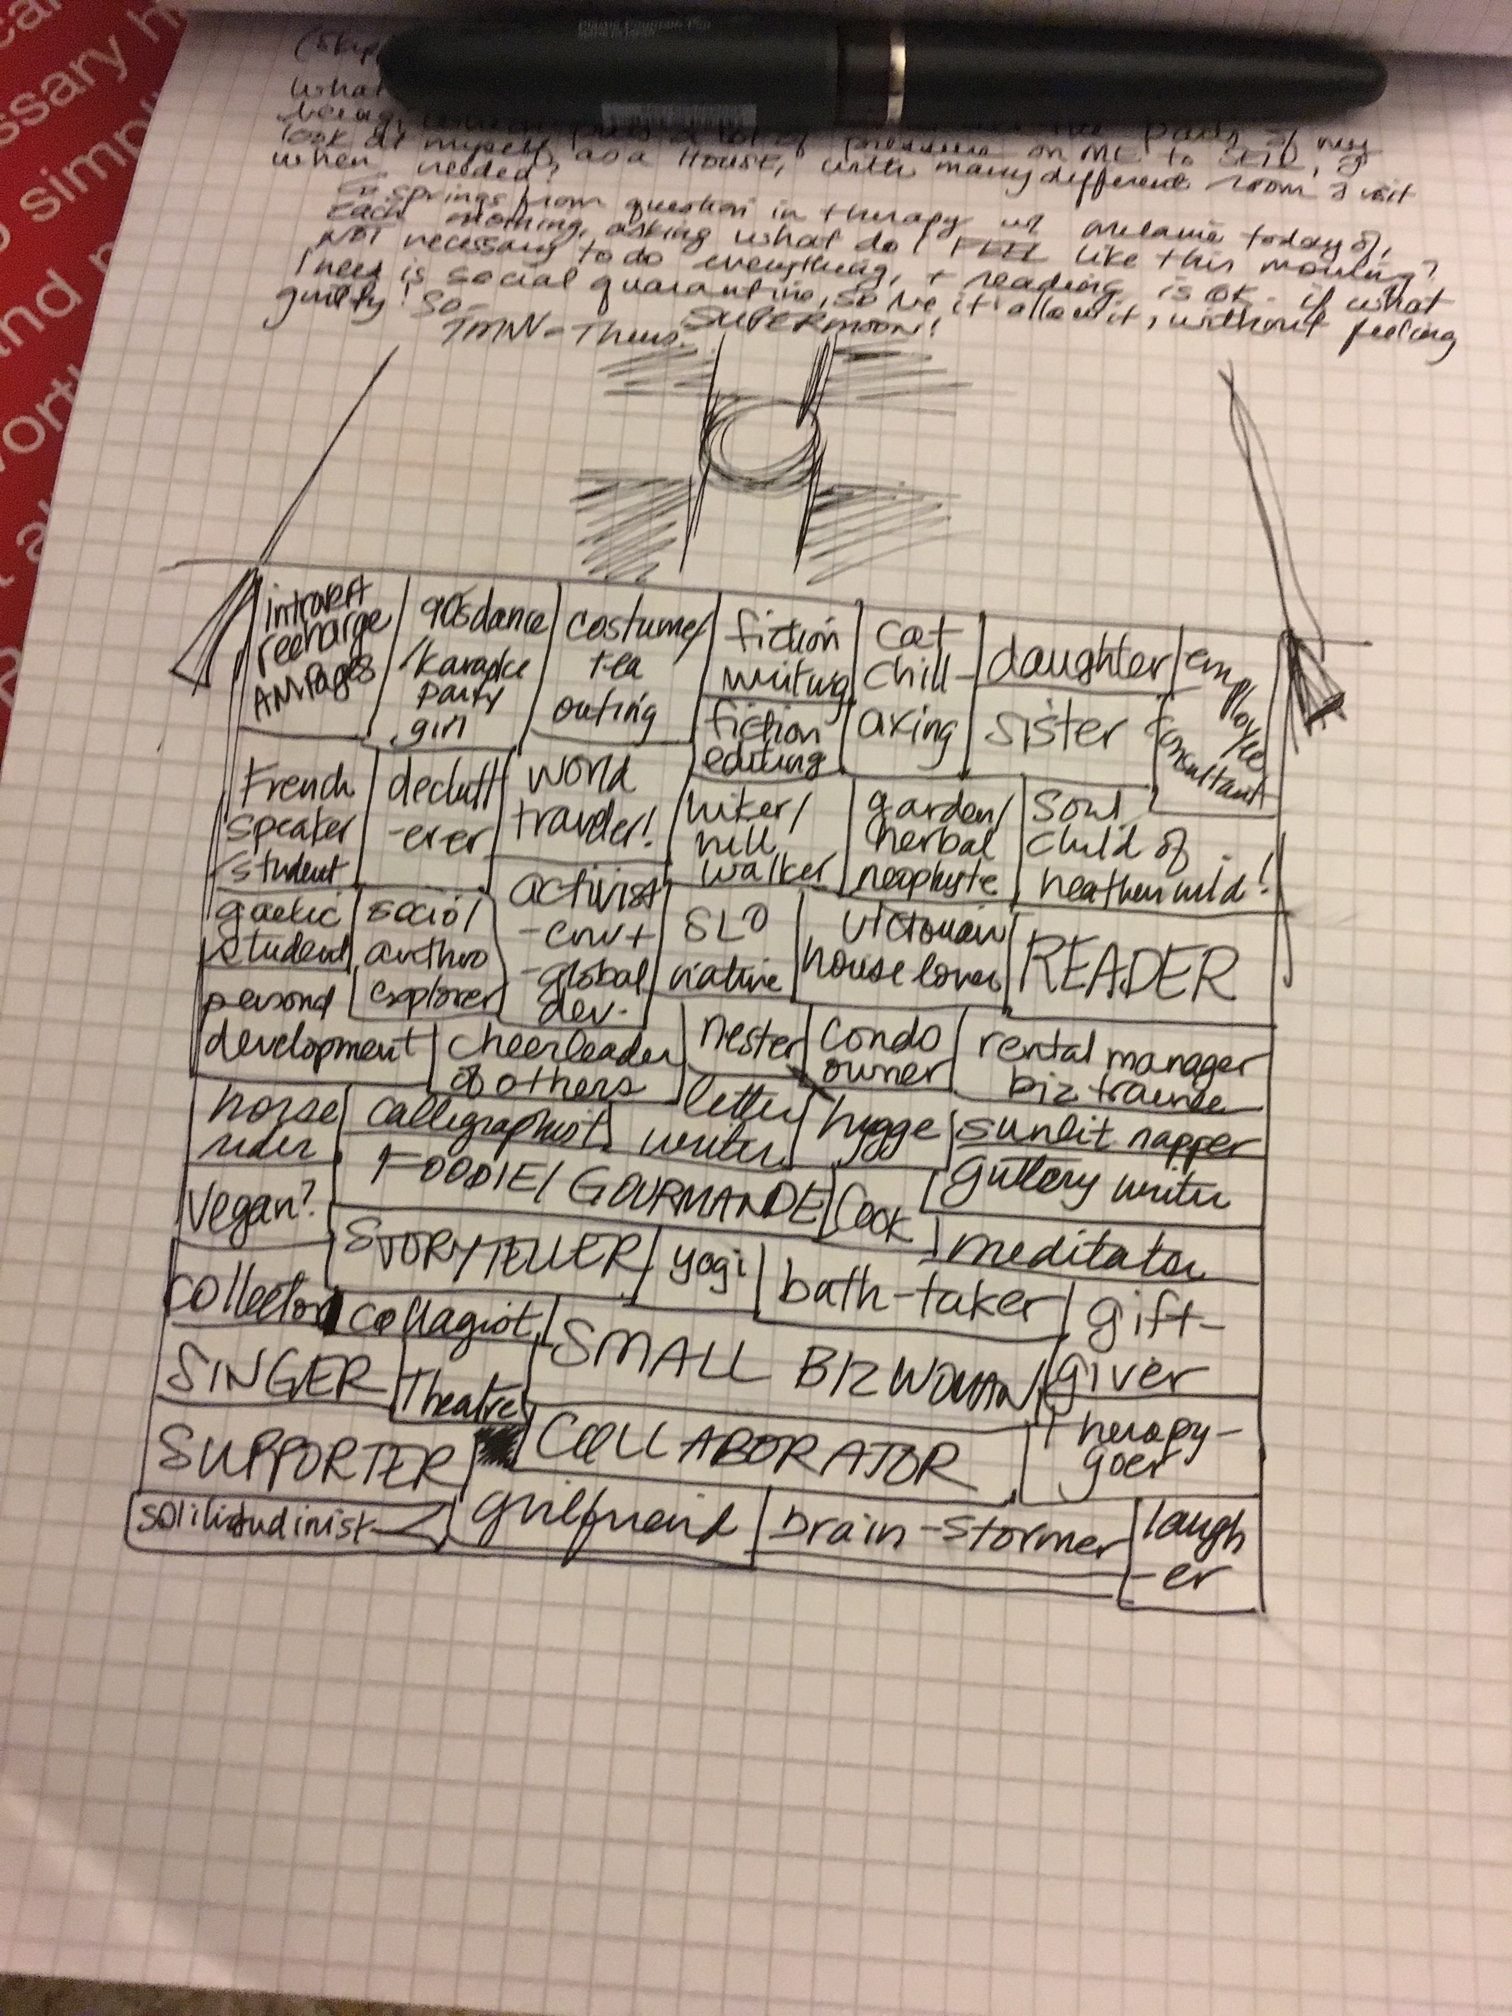 ssary h
simpl
and
vort
(Skip
What
being,
look at myself, as a House, with many different rooms I visit
when needed?
springs from question in therapy w/ Melanie today of,
Each morning, asking what do I FEEL like this morning?
NOT necessary to do everything, + reading is OK. if what
I need is social quarantine, so be it, allow it, without feeling
guilty! So-
TMW = Thurs. SUPERmoon!
introvert
recharge
AM Pages
90s dance
/karaoke
party
girl
costume/
tea
outing
fiction
writing
fiction
editing
cat
chill-
axing
daughter
sister
employee
/consultant
French
speaker
/student
declutt
-erer
world
traveler!
hiker/
hill
walker
garden/
herbal
neophyte
Soul
child of
heathen wild!
gaelic
student
social
anthro
explorer
activist
-env +
-global
dev.
SLO
native
Victorian
house lover
READER
personal
development
cheerleader
of others
nester
condo
owner
rental manager
biz trainee
horse
rider
calligraphist
letter
writer
hygge
sunlit napper
vegan?
FOODIE/ GOURMANDE
Cook
guttery writer
STORYTELLER
yogi
bath-taker
meditator
collector
collagist
SMALL BIZ WOMAN
gift-
giver
SINGER
Theatre
SUPPORTER
COLLABORATOR
Therapy-
goer
solilitudinist
girlfriend
brain-stormer
laugh
-er